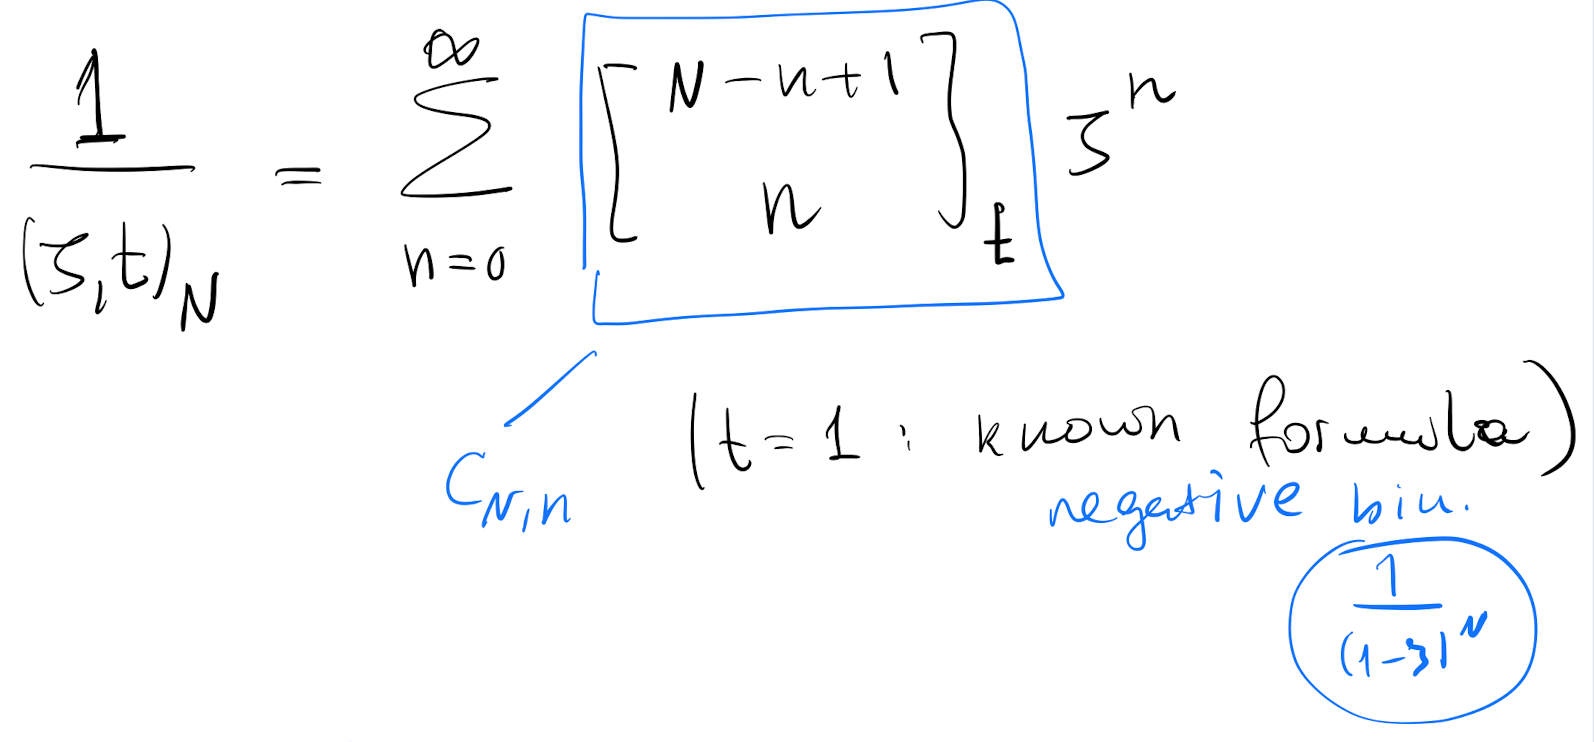 1/(ζ,t)_N = ∑_{n=0}^{∞} [N-n+1 n]_t ζ^n
C_{N,n}
(t=1: known formula)
negative bin.
1/(1-ζ)^N